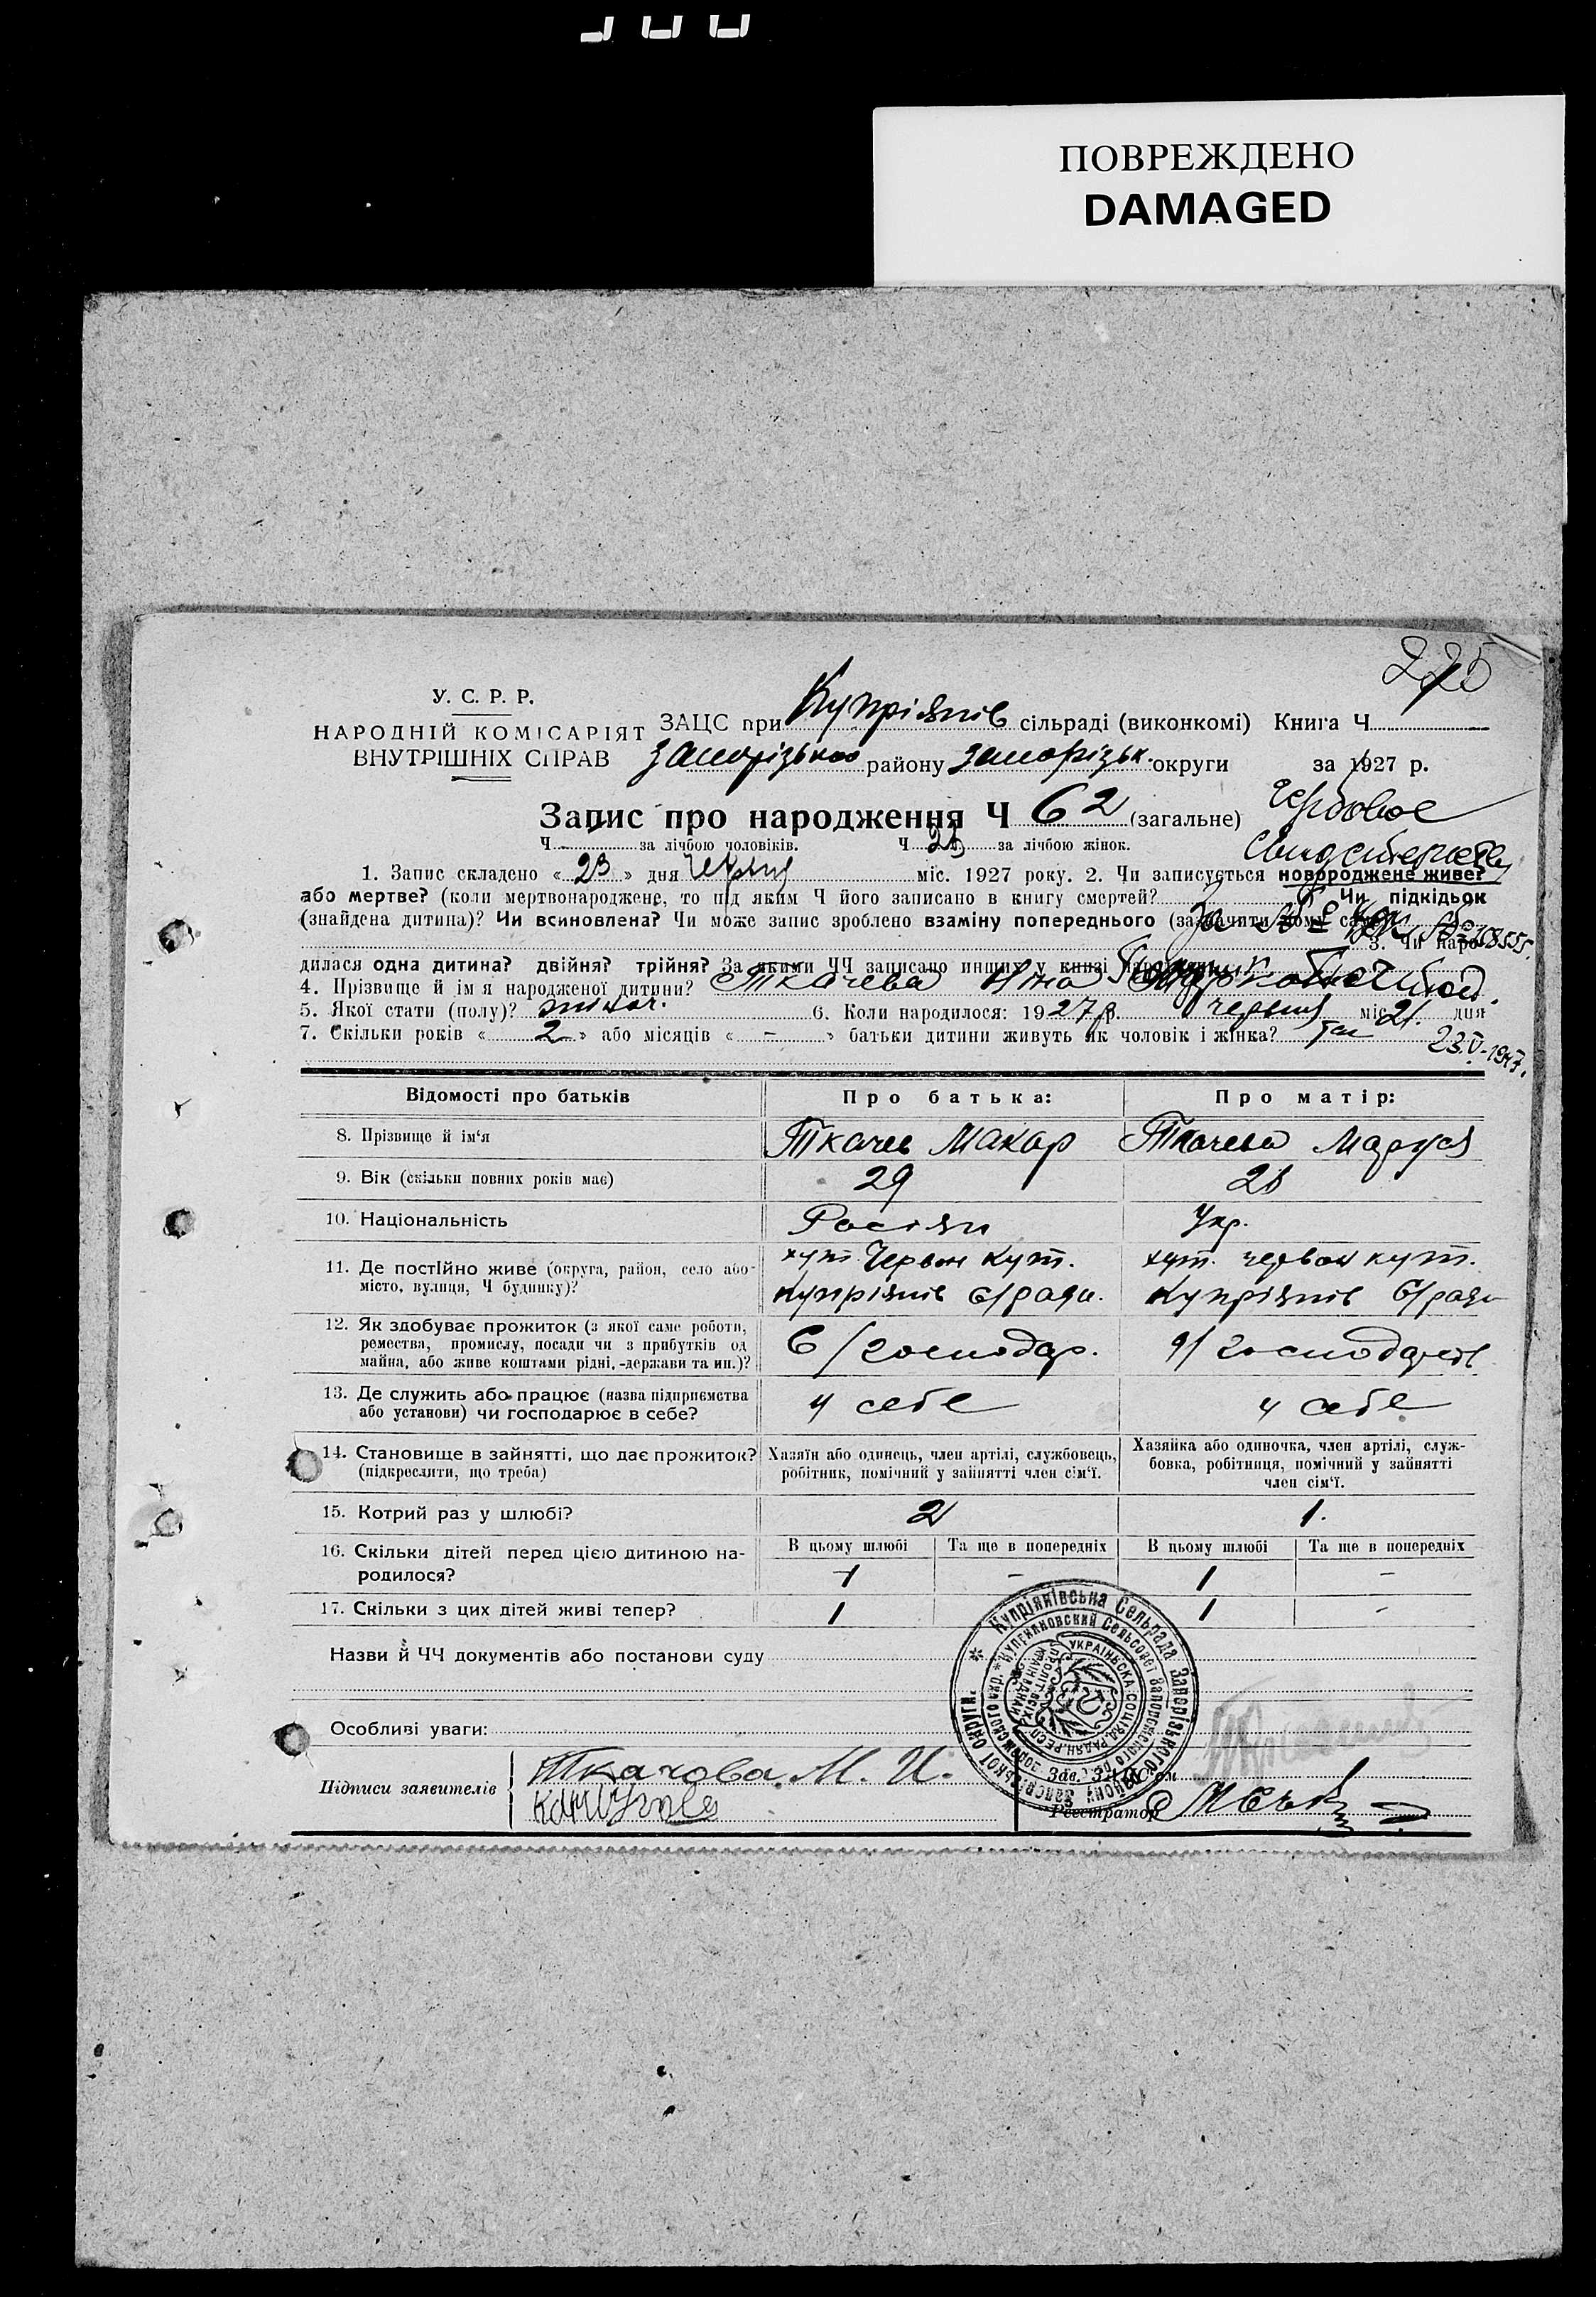 ПОВРЕЖДЕНО
DAMAGED
225
У. С. Р. Р.
НАРОДНІЙ КОМІСАРІЯТ
ВНУТРІШНІХ СПРАВ
ЗАЦС при Купріянів сільраді (виконкомі) Книга Ч
Запорізького району Запорізьк. округи за 1927 р.
Запис про народження Ч 62 (загальне)
Ч за лічбою чоловіків. Ч за лічбою жінок.
1. Запис складено « 23 » дня Червня міс. 1927 року. 2. Чи записується новороджене живе?
або мертве? (коли мертвонароджене, то під яким Ч його записано в книгу смертей? Чи підкідьок
(знайдена дитина)? Чи всиновлена? Чи може запис зроблено взаміну попереднього (зазначити чому саме
3. Чи наро-
дилася одна дитина? двійня? трійня? За якими ЧЧ записано инших у книзі
4. Прізвище й ім я народженої дитини? Ткачева Ніна
5. Якої статі (полу)? жіноч. 6. Коли народилося: 1927 р. червня міс. 21. дня
7. Скільки років « 2 » або місяців « - » батьки дитини живуть як чоловік і жінка? Так
23.V-1947.
Відомості про батьків Про батька: Про матір:
8. Прізвище й ім'я Ткачев Макар Ткачева Маруся
9. Вік (скільки повних років має) 29
10. Національність Росіян Укр.
11. Де постійно живе (округа, район, село або
місто, вулиця, Ч будинку)?
хут. Червон Кут. хут. червон кут.
Купріянів с/ради. Купріянів с/ради
12. Як здобуває прожиток (з якої саме роботи,
ремества, промислу, посади чи з прибутків од
майна, або живе коштами рідні,-держави та ин.)?
с/господар.
13. Де служить або працює (назва підприємства
або установи) чи господарює в себе?
у себе у себе
14. Становище в зайнятті, що дає прожиток?
(підкреслити, що треба)
Хазяїн або одинець, член артілі, службовець,
робітник, помічний у зайнятті член сім'ї.
Хазяйка або одиночка, член артілі, служ-
бовка, робітниця, помічний у зайнятті
член сім'ї.
15. Котрий раз у шлюбі? 2 1.
16. Скільки дітей перед цією дитиною на-
родилося?
В цьому шлюбі Та ще в попередніх В цьому шлюбі Та ще в попередніх
1 - 1 -
17. Скільки з цих дітей живі тепер? 1 1 -
Назви й ЧЧ документів або постанови суду
Особливі уваги:
Підписи заявителів Ткачова М. И.
Зав. ЗАЦС'ом
Реєстратор
Купріянівська Сельрада Запорізького району Запорізької округи.